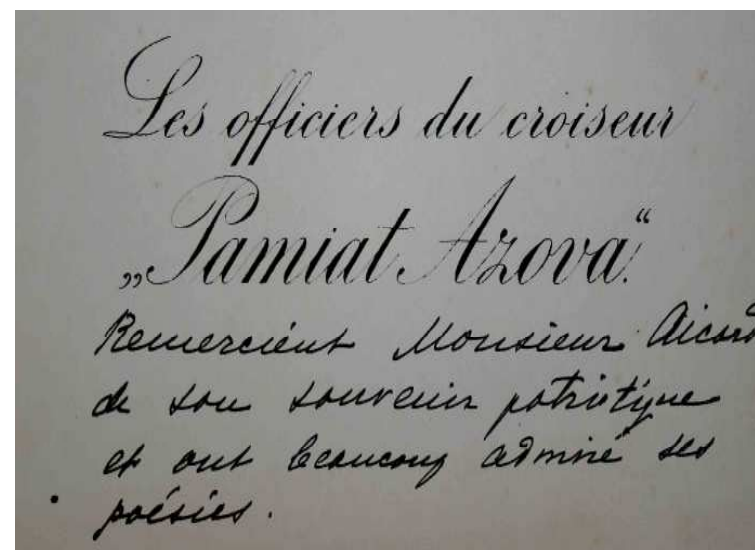 Les officiers du croiseur
„Pamiat Azova.“
Remercient Monsieur Aicard
de son souvenir patriotique
et ont beaucoup admiré ses
poésies.